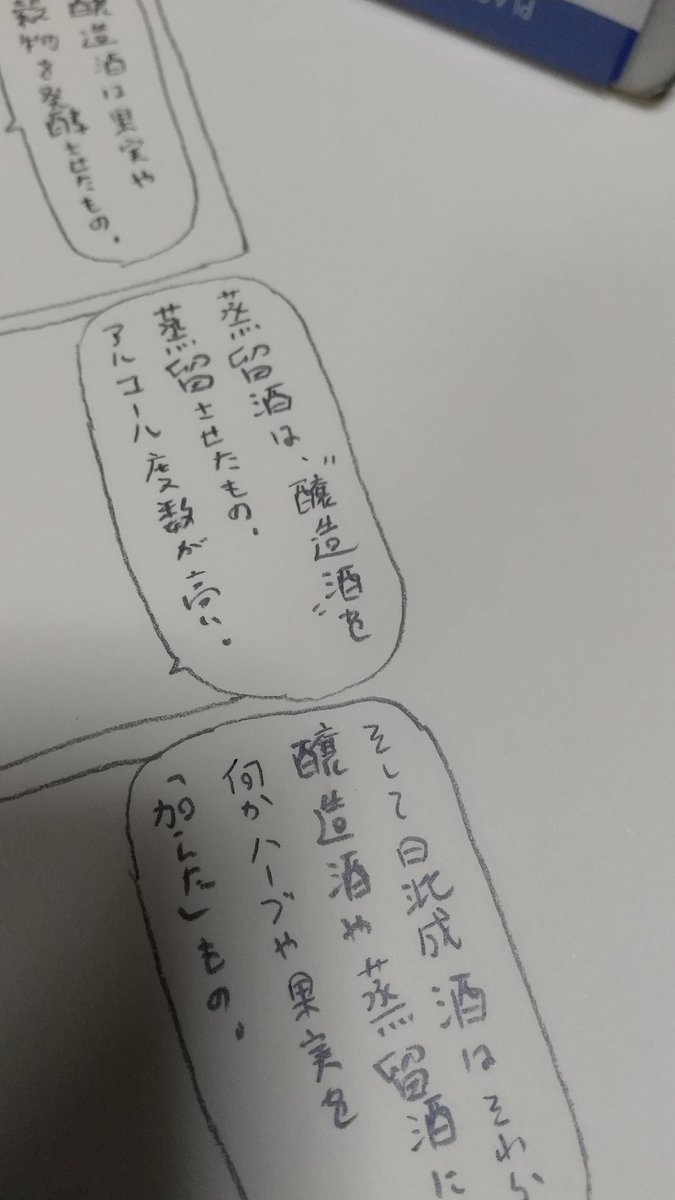 醸造酒は果実や
穀物を発酵させたもの。
蒸留酒は、"醸造酒"を
蒸留させたもの。
アルコール度数が高い。
そして混成酒はそれら
醸造酒や蒸留酒に
何かハーブや果実を
「加えた」もの。
PLA